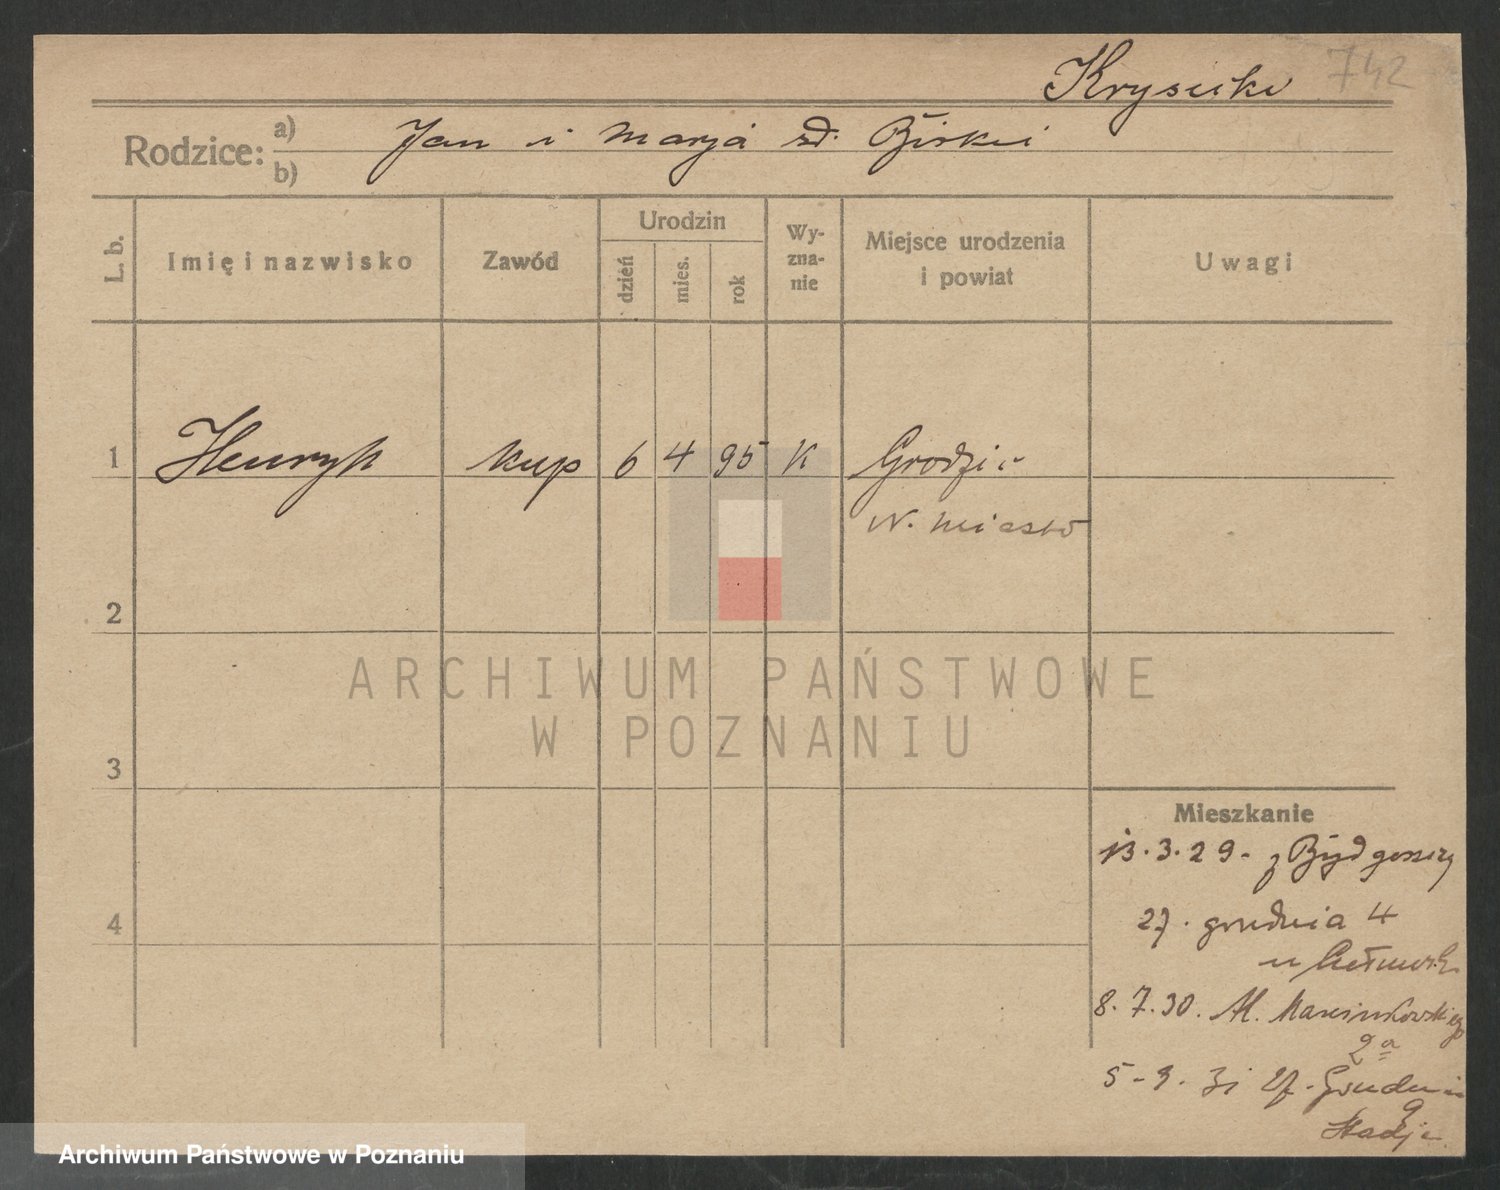 Krysicki 742
Rodzice: a) b) Jan i Marja zd.
L. b.
Imię i nazwisko
Zawód
Urodzin
dzień mies. rok
Wy-
zna-
nie
Miejsce urodzenia
i powiat
Uwagi
1 Henryk kup 6 4 95 K
N. Miasto
2
3
4
ARCHIWUM PAŃSTWOWE
W POZNANIU
Mieszkanie
13.3.29. z Bydgoszczy
27. grudnia 4
u
8.7.30. Al. Marcinkowskiego
2a
5-9. 31 27. Grudnia
9
Archiwum Państwowe w Poznaniu